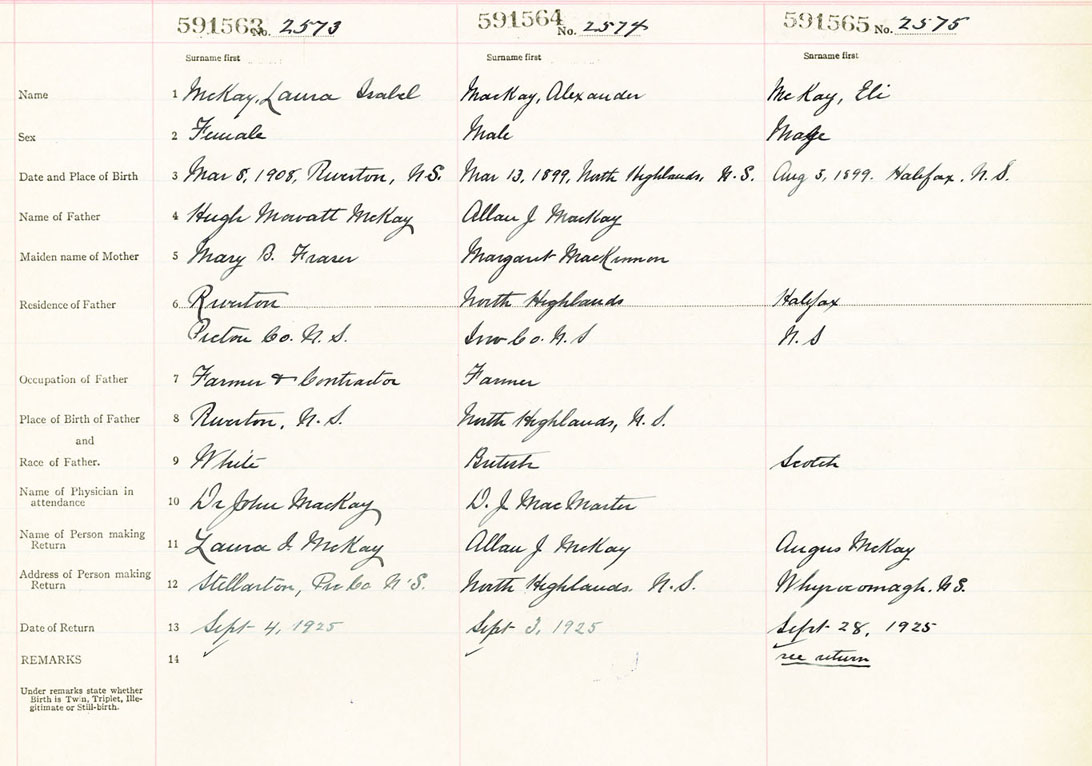 591563 No. 2573 591564 No. 2574 591565 No. 2575
Surname first Surname first Surname first
Name 1 McKay, Laura Isabel MacKay, Alexander McKay, Eli
Sex 2 Female Male Male
Date and Place of Birth 3 Mar 8, 1908, Riverton, N.S. Mar 13, 1899, North Highlands, N.S. Aug 5, 1899. Halifax, N.S.
Name of Father 4 Hugh Mowatt McKay Allan J MacKay
Maiden name of Mother 5 Mary B. Fraser Margaret MacKinnon
Residence of Father 6 Riverton North Highlands Halifax
Pictou Co. N.S. Inv Co. N.S N.S
Occupation of Father 7 Farmer & Contractor Farmer
Place of Birth of Father 8 Riverton, N.S. North Highlands, N.S.
and
Race of Father. 9 White British Scotch
Name of Physician in
attendance 10 Dr John MacKay D. J MacMaster
Name of Person making
Return 11 Laura I. McKay Allan J McKay Angus McKay
Address of Person making
Return 12 Stellarton, Pic Co N.S. North Highlands. N.S. Whycocomagh. N.S.
Date of Return 13 Sept 4, 1925 Sept 3, 1925 Sept 28, 1925
REMARKS 14 see return
Under remarks state whether
Birth is Twin, Triplet, Ille-
gitimate or Still-birth.